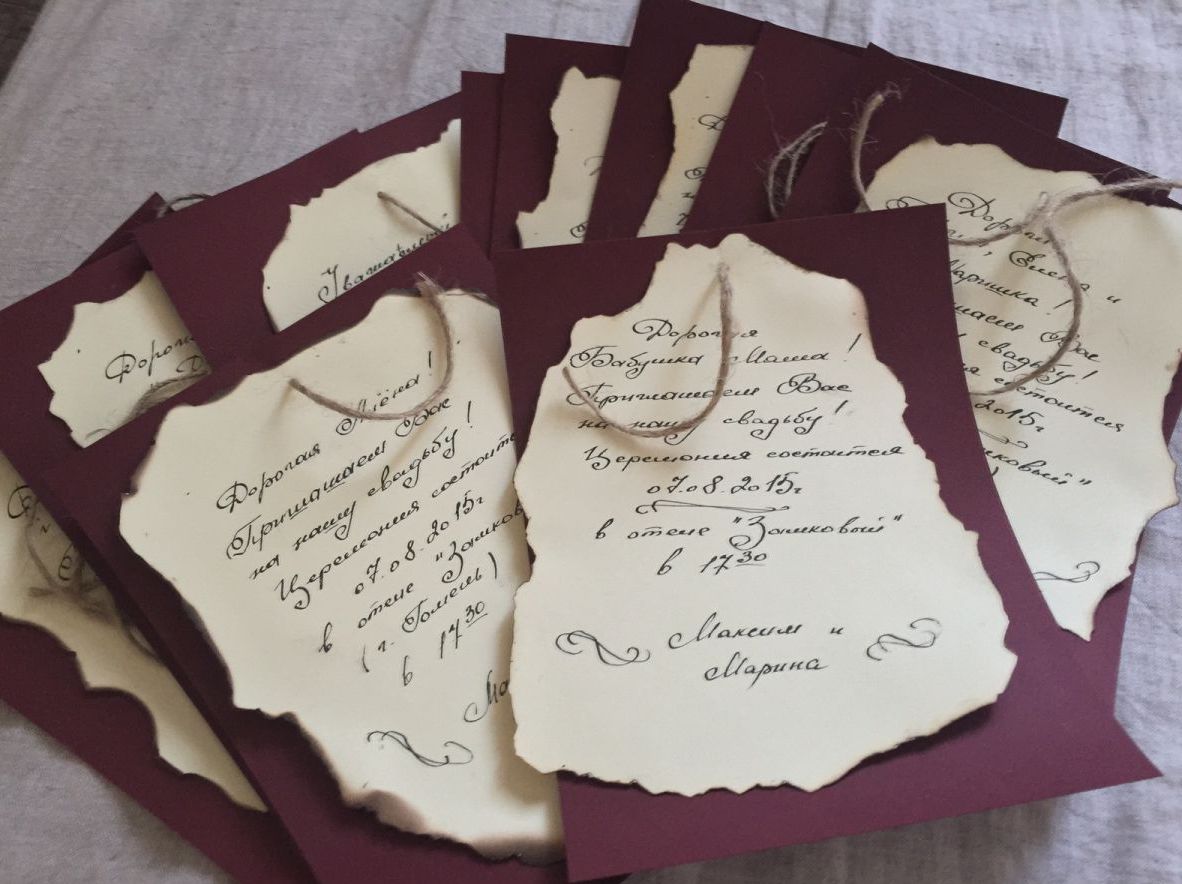 Дорогая
Бабушка Маша!
Приглашаем Вас
на нашу свадьбу!
Церемония состоится
07.08.2015г
в отеле "Замковый"
в 17³⁰
Максим и
Марина
Дорогая Алёна!
Приглашаем Вас
на нашу свадьбу!
Церемония состоит
07.08.2015г
в отеле "Замков
(г. Гомель)
в 17³⁰
Ма
Дорог
Елена и
Маришка!
шаем Вас
свадьбу!
состоится
2015г
мковый"
)
Уважаемый
Дорога